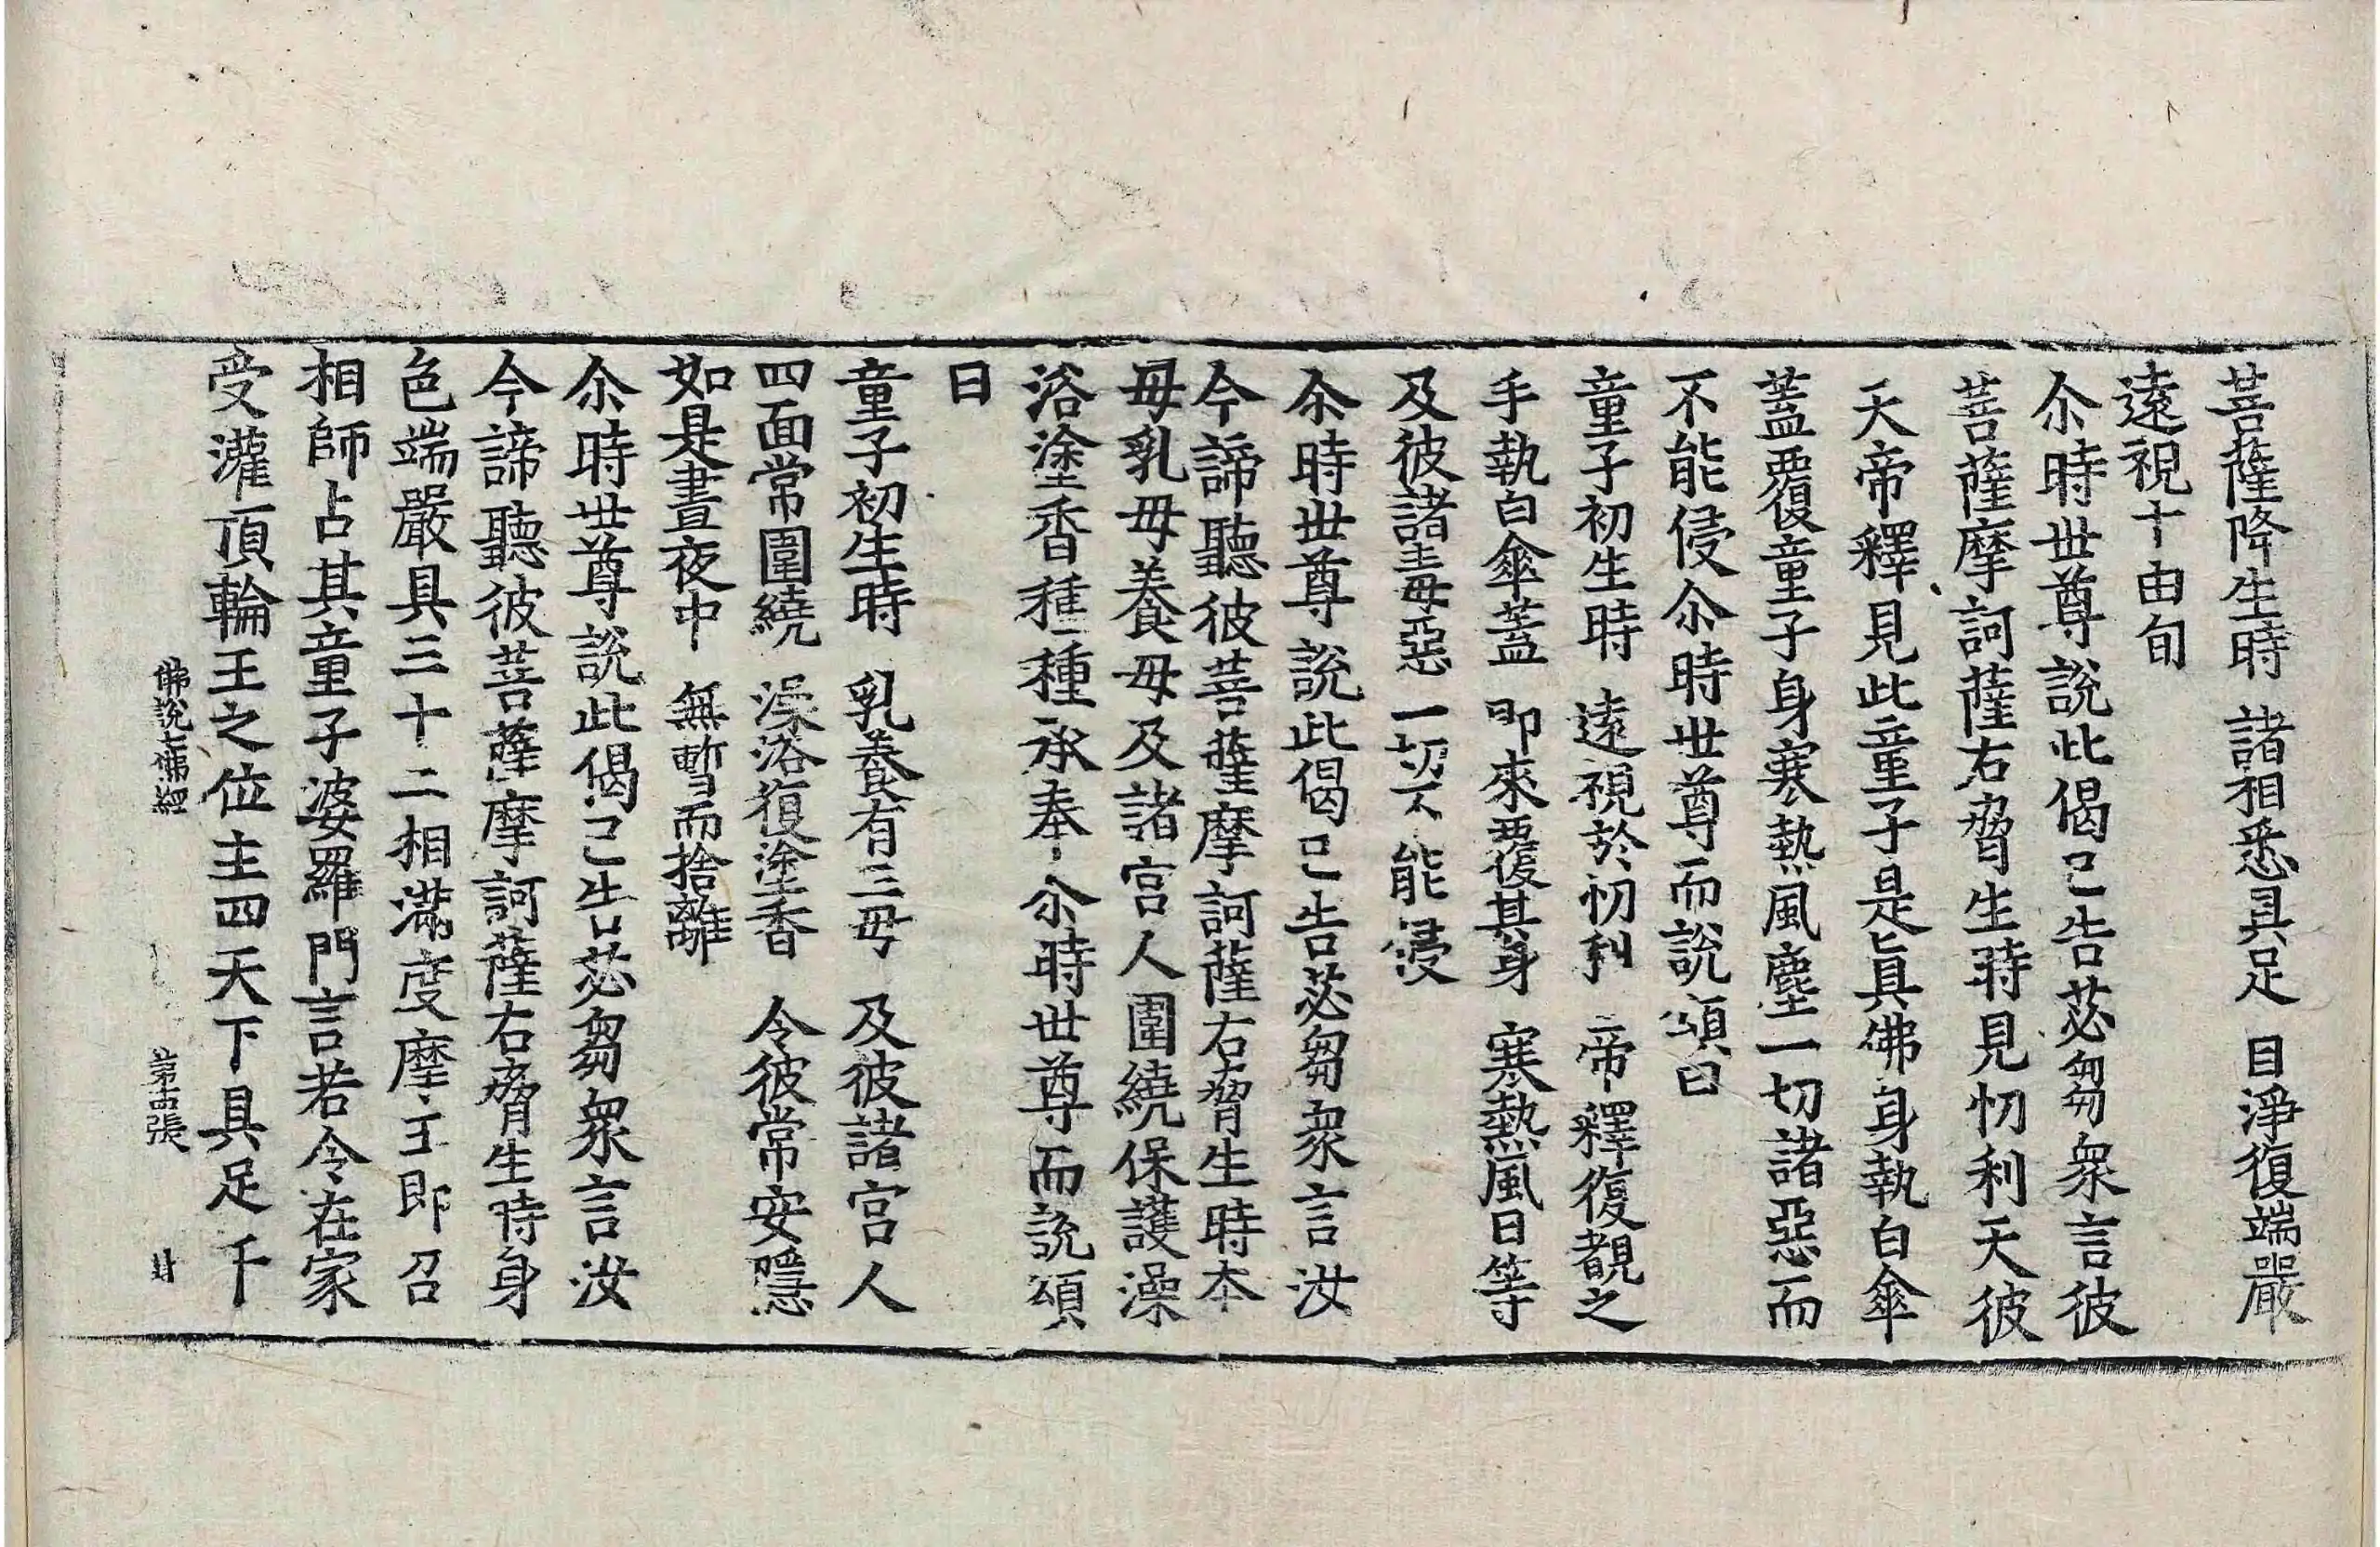 菩薩降生時　諸相悉具足　目淨復端嚴
遠視十由旬
尒時世尊說此偈已告苾芻衆言彼
菩薩摩訶薩右脅生時見忉利天彼
天帝釋見此童子是眞佛身執白傘
蓋覆童子身寒熱風塵一切諸惡而
不能侵尒時世尊而說頌曰
童子初生時　遠視於忉利　帝釋復覩之
手執白傘蓋　即來覆其身　寒熱風日等
及彼諸毒惡　一切不能侵
尒時世尊說此偈已告苾芻衆言汝
今諦聽彼菩薩摩訶薩右脅生時本
母乳母養母及諸宮人圍繞保護澡
浴塗香種種承奉尒時世尊而說頌
曰
童子初生時　乳養有三母　及彼諸宮人
四面常圍繞　澡浴復塗香　令彼常安隱
如是晝夜中　無暫而捨離
尒時世尊說此偈已告苾芻衆言汝
今諦聽彼菩薩摩訶薩右脅生時身
色端嚴具三十二相滿度摩王即召
相師占其童子婆羅門言若令在家
受灌頂輪王之位主四天下具足千
佛說七佛經　第十五張